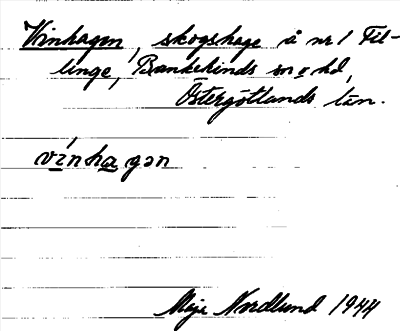 Vinhagen, skogshage å nr 1 Fil-
linge, Bankekinds sn o hd,
Östergötlands län.
vínhagən
Maja Nordlund 1944